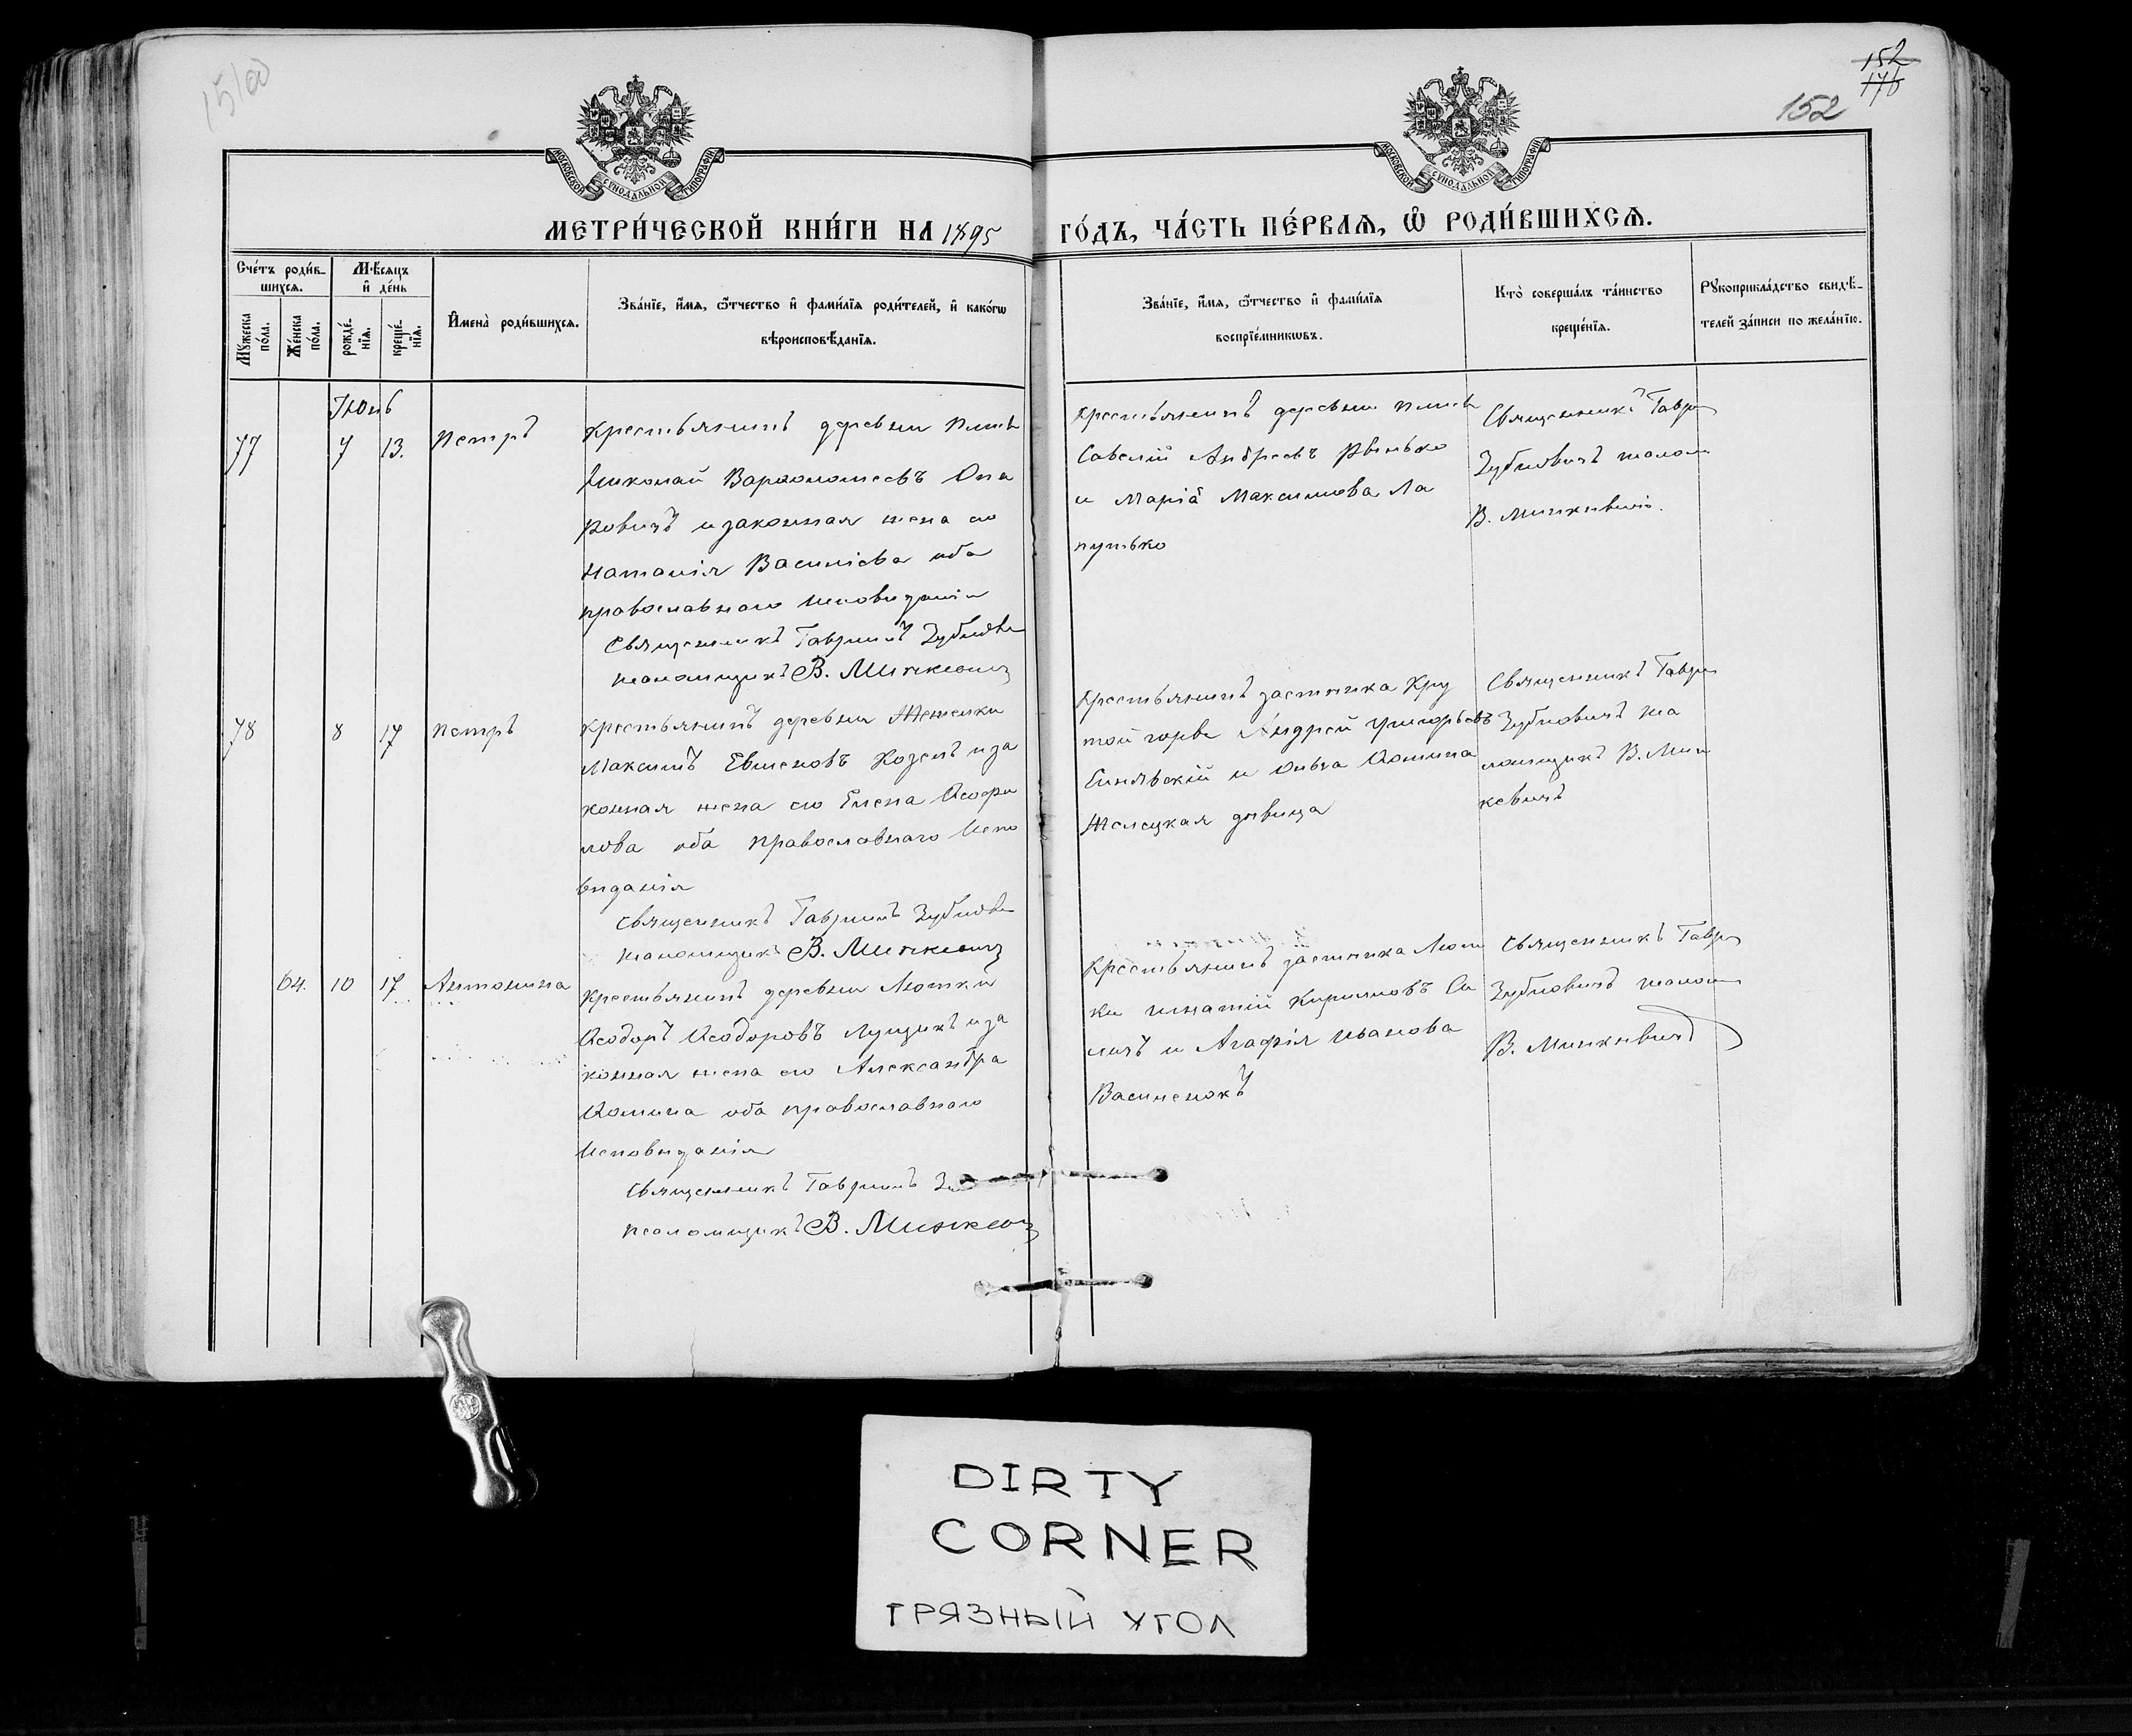 15/00
152
176
152
МОСКОВСКОЙ СѴНОДАЛЬНОЙ ТИПОГРАФІИ
МОСКОВСКОЙ СѴНОДАЛЬНОЙ ТИПОГРАФІИ
МЕТРИ́ЧЕСКОЙ КНИ́ГИ НА 1895
ГО́ДЪ, ЧА́СТЬ ПЕ́РВАЯ, Ѽ РОДИ́ВШИХСЯ.
Сче́тъ роди́в-
шихся.
Мѣ́сяцъ
и҆ де́нь
Мꙋ́жеска
по́ла.
Же́нска
по́ла.
рожде́-
нїя.
креще́-
нїя.
И҆мена̀ роди́вшихся.
Зва́нїе, и҆́мя, ѻ҆́тчество и҆ фами́лїя роди́телей, и҆ како́гѡ
вѣроисповѣ́данїя.
Зва́нїе, и҆́мя, ѻ҆́тчество и҆ фами́лїя
воспрїе́мникѡвъ.
Кто̀ соверша́лъ та́инство
креще́нїя.
Рꙋкоприкла́дство свидѣ́-
телей за́писи по жела́нїю.
Іюнь
77 7 13. Петръ
Крестьянинъ деревни
Николай Варѳоломеевъ Опа
ровичъ и законная жена его
Наталія Василіева оба
православнаго исповѣданія
Священникъ Гавріилъ Зубкови
псаломщикъ В. Минкевичъ
Крестьянинъ деревни
Савелій Андреевъ
и Марія Максимова Ла
путько
Священникъ Гаври
Зубковичъ псалом
В. Минкевичъ.
78 8 17 Петръ
Крестьянинъ деревни
Максимъ Евменовъ Козелъ и за
конная жена его Елена Ѳеофи
лова оба православнаго испо
вѣданія
Священникъ Гавріилъ Зубкови
псаломщикъ В. Минкевичъ
Крестьянинъ застѣнка Кру
той горы Андрей Григорьевъ
и Ольга Ѳомина
Желецкая дѣвица
Священникъ Гаври
Зубковичъ пса
ломщикъ В. Мин
кевичъ
64. 10 17 Антонина
Крестьянинъ деревни Лютки
Ѳеодоръ Ѳеодоровъ Лущикъ и за
конная жена его Александра
Ѳомина оба православнаго
исповѣданія
Священникъ Гавріилъ
псаломщикъ В. Минкевичъ
Крестьянинъ застѣнка Лют
ки Игнатій Кирилловъ Са
личъ и Агафія Иванова
Василенокъ
Священникъ Гаври
Зубковичъ псалом
В. Минкевичъ
DIRTY
CORNER
ГРЯЗНЫЙ УГОЛ